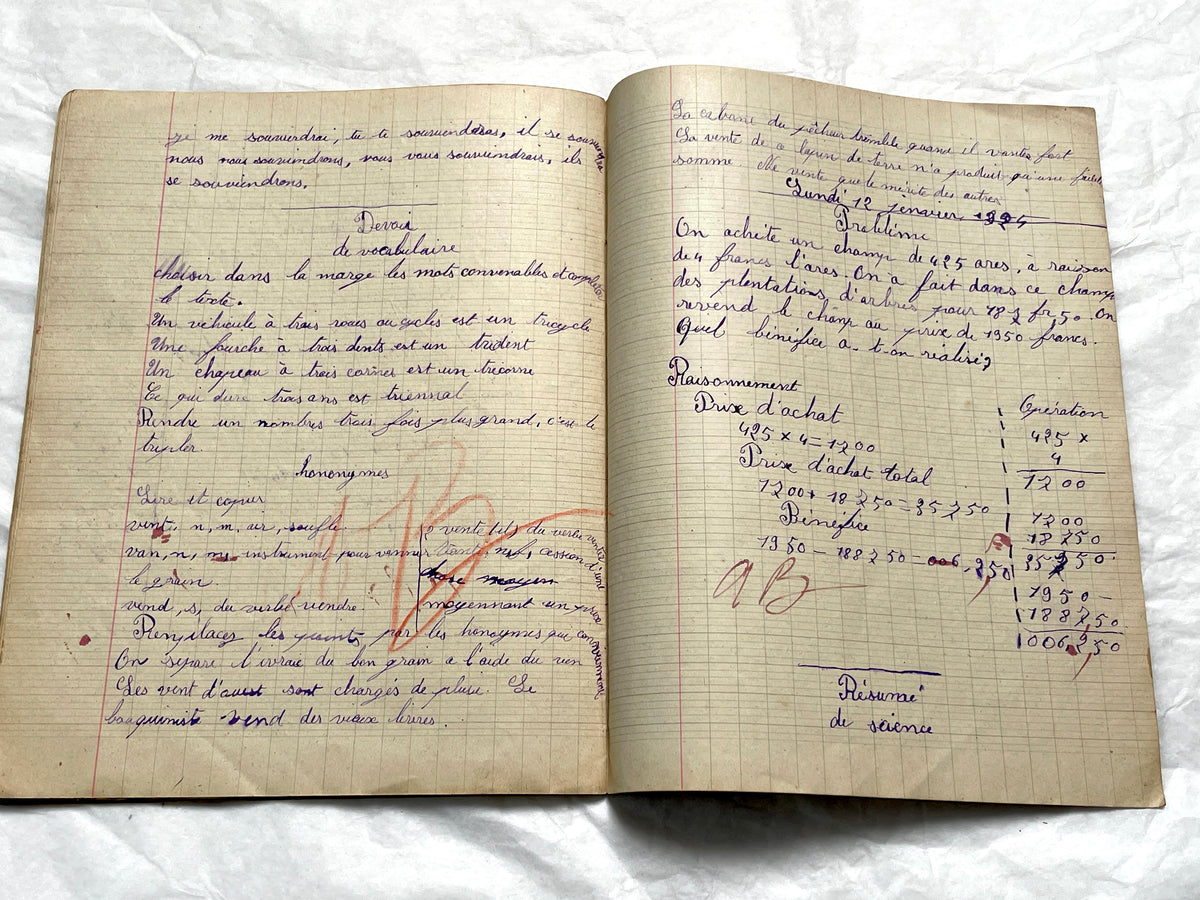 je me souviendrai, tu te souviendras, il se souviendra
nous nous souviendrons, vous vous souviendrais, ils
se souviendrons.
Devoir
de vocabulaire
choisir dans la marge les mots convenables et compléter
le texte.
Un véhicule à trois roues ou cycles est un tricycle
Une fourche à trois dents est un trident
Un chapeau à trois cornes est un tricorne
Ce qui dure trois ans est triennal
Rendre un nombres trois fois plus grand, c'est le
tripler.
honomymes
Lire et copier
vent, n, m, air, souffle.
van, n, m, instrument pour vanner
le grain.
vend, s, du verbe vendre.
vente tits du verbe venter
Vente nf, cession d'une
chose moyen
moyennant un prix
Remplacez les points, par les honoymes qui conviennent
On sépare l'ivraie du bon grain a l'aide du ven
Les vent d'ouest sont chargés de pluie. Le
bouquiniste vend des vieux livres.
AB
La cabane du pêcheur tremble quand il ventes fort
La vente de ce lopin de terre n'a produit qu'une faible
somme Ne vente que le mérite des autres
Lundi 12 jenvier
Problème
On achète un champ de 425 ares, à raison
de 4 francs l'ares. On a fait dans ce champ
des plentations d'arbres pour 187 fr,50 On
revend le champ au prix de 1950 francs.
Quel bénéfice a-t-on réalisé?
Raisonnement
Prix d'achat
425 x 4 = 1700
Prise d'achat total
Bénéfice
1950 - 1887,50 = 006
AB
Opération
425 x
4
1700
1700
1950 -
1887,50
Résumé
de science